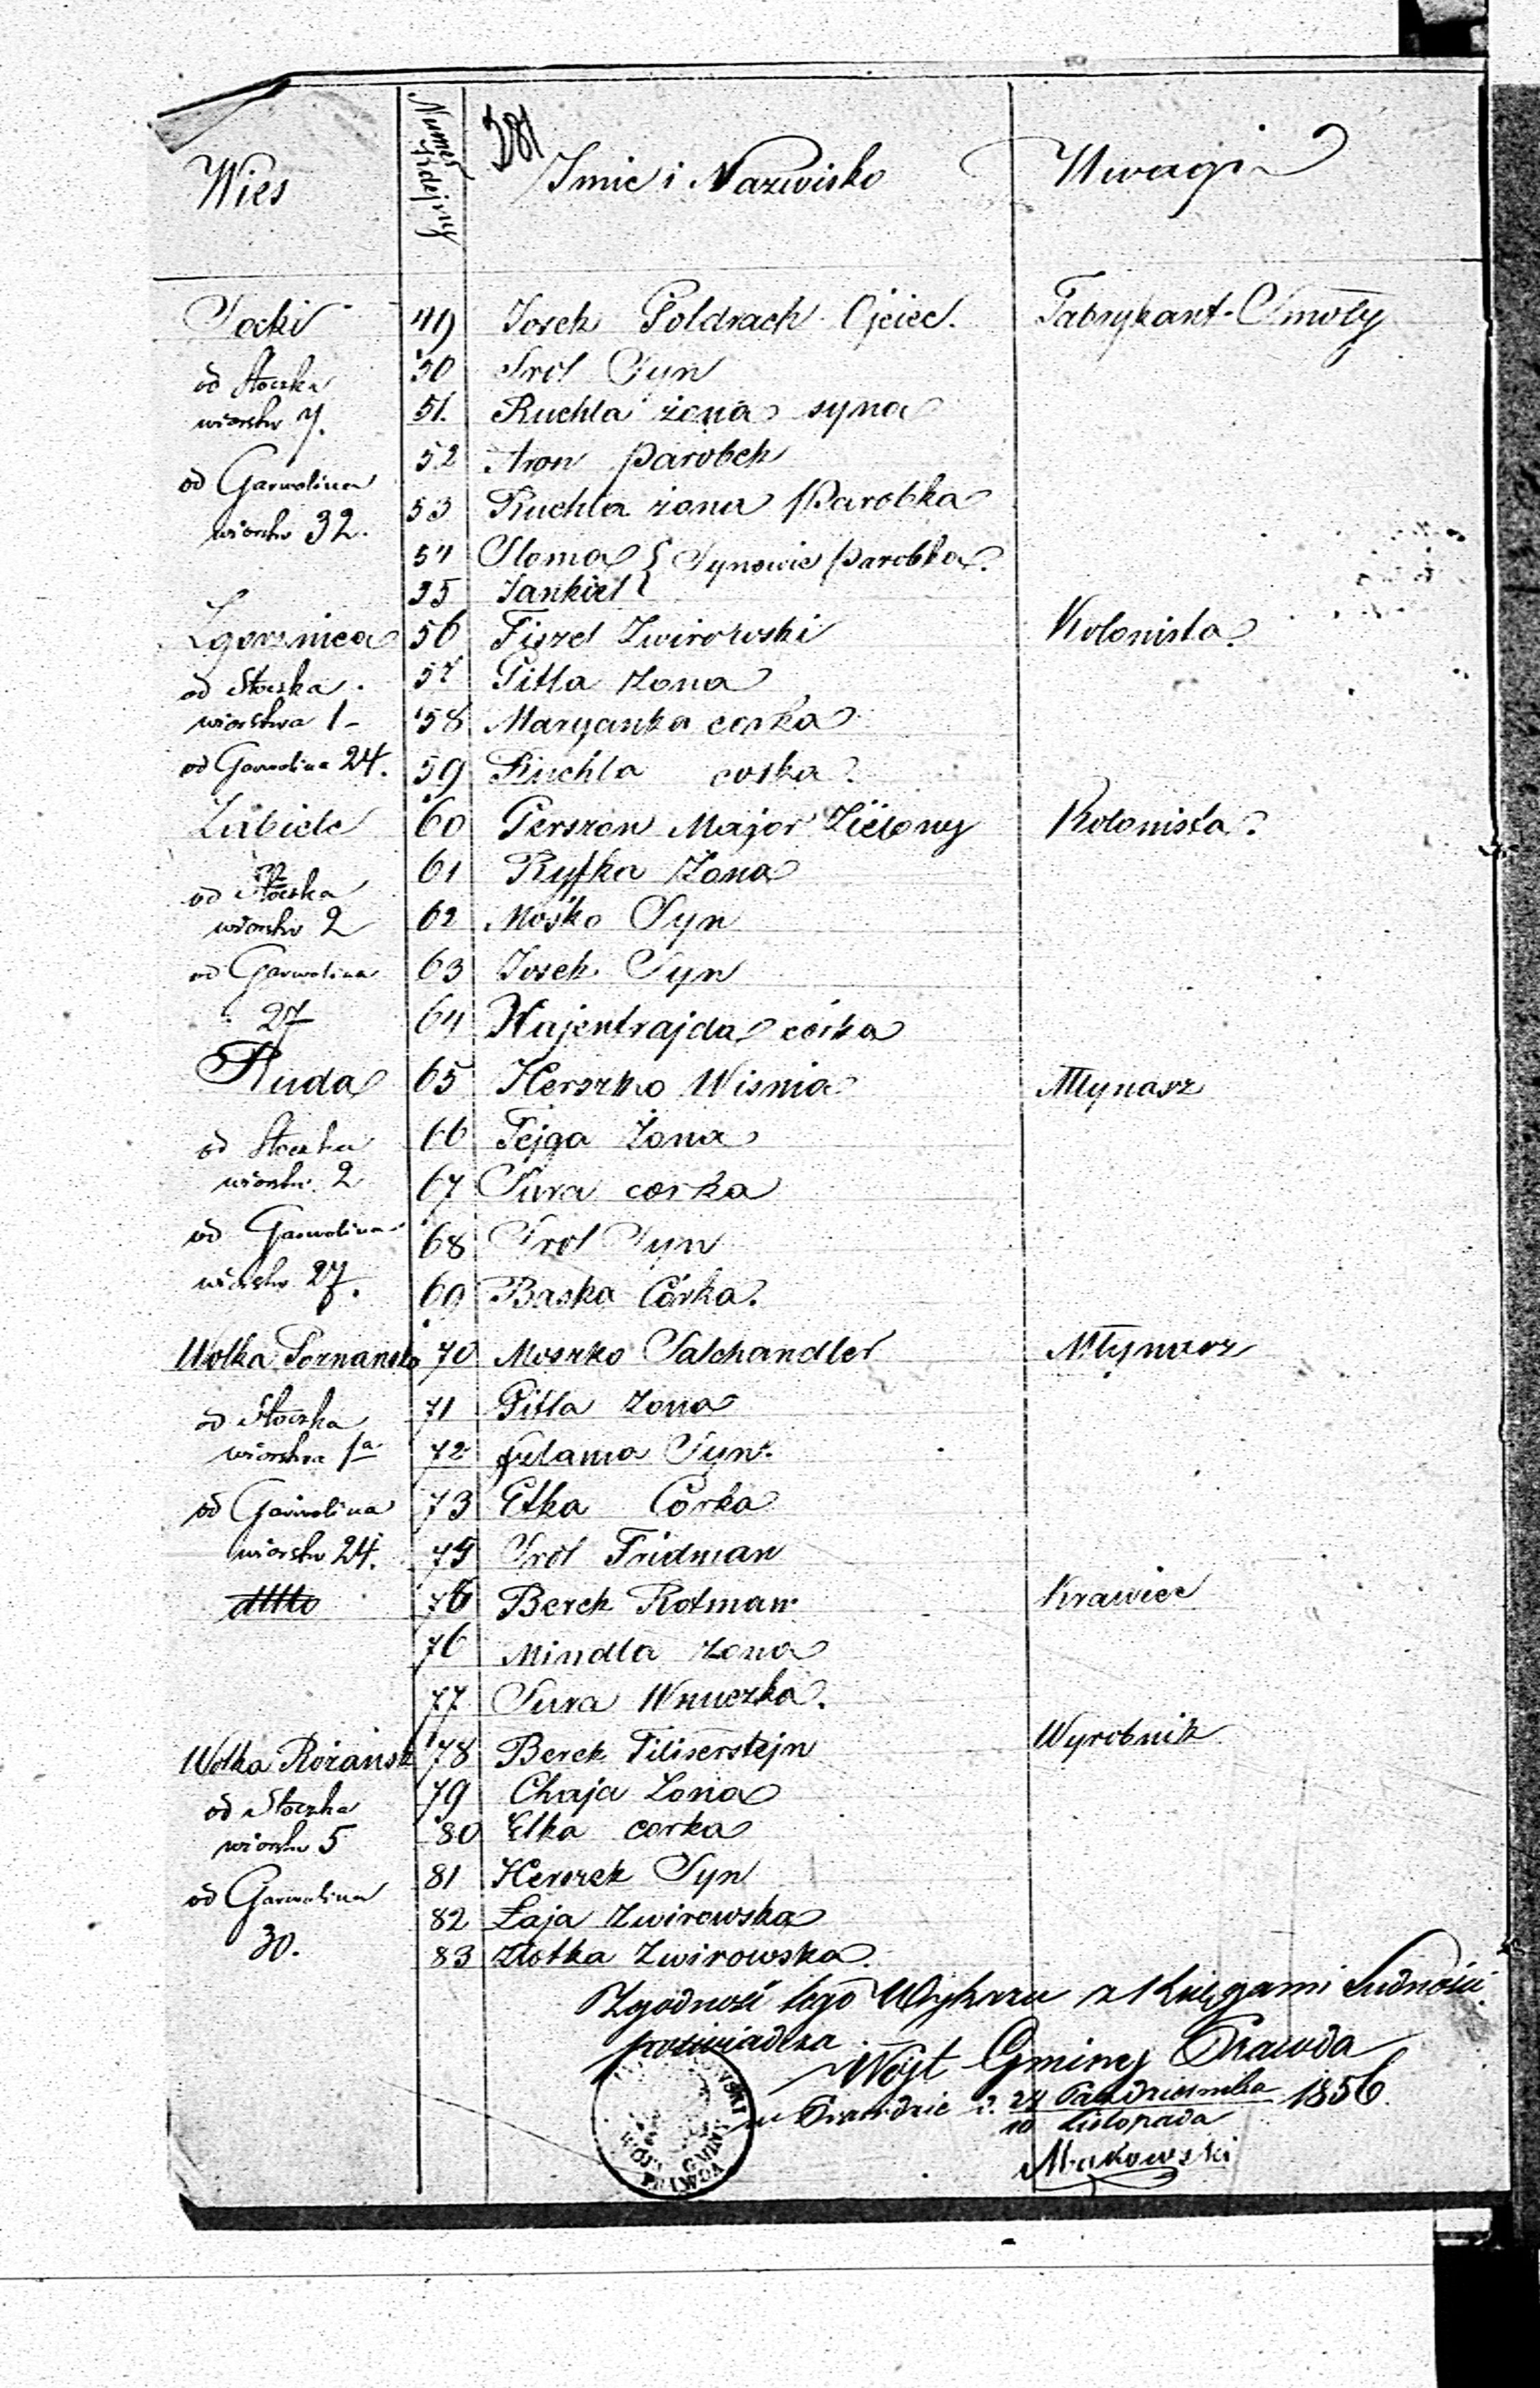 Wies Numer Kolejny 381 Imie i Nazwisko Uwagi
Jocki 49 Josek Goldrach Ojciec. Fabrykant Smoły
od Stoczka 50 Srol Syn
wiorstw 7. 51. Ruchla żona syna
52 Aron parobek
od Garwolina 53 Ruchla żona Parobka
wiorstw 32. 54 Sloma } Synowie parobka.
55 Jankiel
Zgorznica 56 Fiszel Zwirowski Kolonista
od Stoczka 57 Gitla Zona
wiorstwa 1 58 Maryanka corka
od Garwolina 24. 59 Ruchla corka
Zabiele 60 Gerszon Major Zielony Kolonista
61 Ryfka Zona
od Stoczka 62 Mośko Syn
wiorstw 2
od Garwolina 63 Josek Syn
27 64 Hajentrajda córka
Ruda 65 Herszko Wisnia Młynarz
od Stoczka 66 Fejga Żona
wiorstw 2 67 Sura corka
od Garwolina 68 Srol Syn
wiorstw 27. 69 Baska Córka.
Wolka Poznansko 70 Moszko Salchandler Młynarz
od Stoczka 71 Gitla Zona
wiorstwa 1a 72 Syn.
od Garwolina 73 Etka Corka
wiorstw 24. 75 Srol Fridman
ditto 76 Berek Rotman Krawiec
76 Mindla Zona
77 Sura Wnuczka.
Wolka Różańsk 78 Berek Filiserstejn Wyrobnik
od Stoczka 79 Chaja Zona
wiorstw 5 80 Elka corka
81 Herszek Syn
od Garwolina 82 Łaja Zwirowska
30. 83 Złotka Zwirowska
Zgodność tego Wykazu z Księgami Ludności
poświadcza
Wójt Gminy Prawda
w Prawdzie d. 29 Pazdziernika 1856.
10 Listopada
Makowski
WÓJT GMINY
PRAWDA